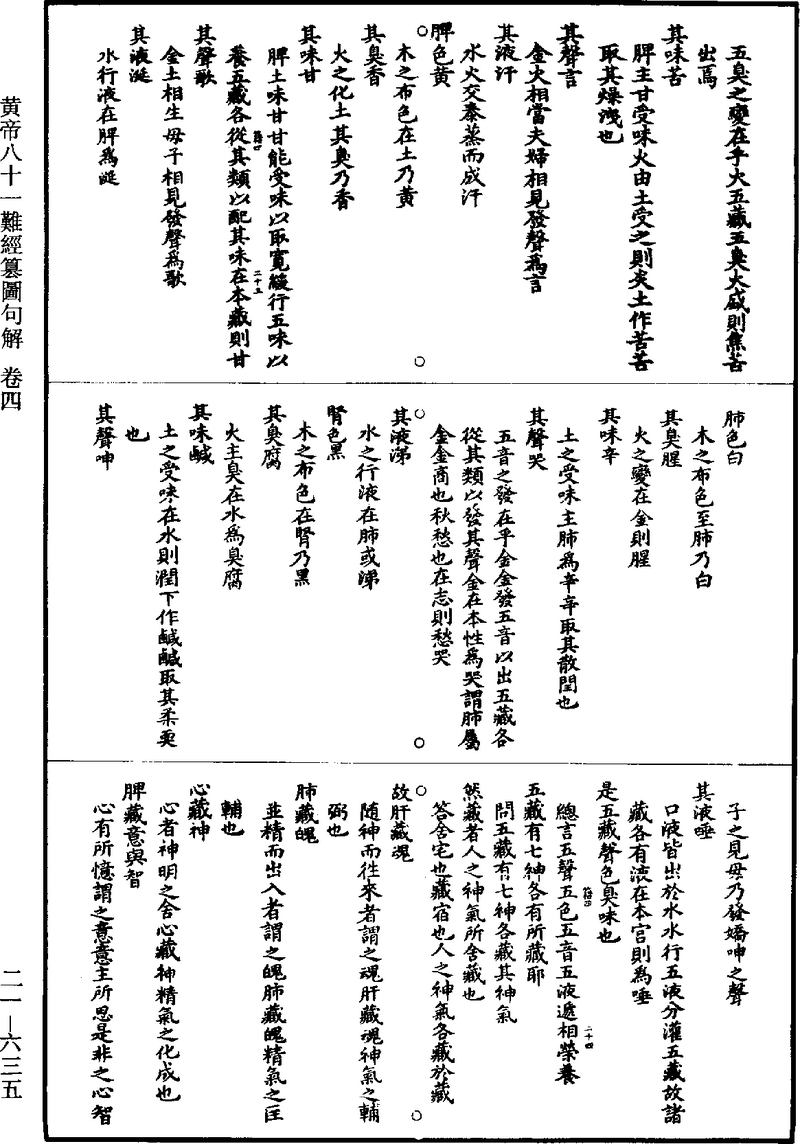 五臭之變在乎火五藏五臭火盛則焦苦
出焉
其味苦
脾主甘受味火由土受之則炎土作苦苦
取其燥洩也
其聲言
金火相當夫婦相見發聲為言
其液汗
水火交泰蒸而成汗
脾色黄
木之布色在土乃黄
其臭香
火之化土其臭乃香
其味甘
脾土味甘甘能受味以取寛緩行五味以
養五藏各從其類以配其味在本藏則甘
其聲歌
金土相生母子相見發聲為歌
其液涎
水行液在脾為涎
肺色白
木之布色至肺乃白
其臭腥
火之變在金則腥
其味辛
土之受味主肺為辛辛取其散閏也
其聲哭
五音之發在乎金金發五音以出五藏各
從其類以發其聲金在本性為哭謂肺屬
金金商也秋愁也在志則愁哭
其液涕
水之行液在肺或涕
腎色黑
木之布色在腎乃黑
其臭腐
火主臭在水為臭腐
其味鹹
土之受味在水則潤下作鹹鹹取其柔耎
也
其聲呻
子之見母乃發嬌呻之聲
其液唾
口液皆出於水水行五液分灌五藏故諸
藏各有液在本宮則為唾
是五藏聲色臭味也
總言五聲五色五音五液遞相榮養
五藏有七神各有所藏耶
問五藏有七神各藏其神氣
然藏者人之神氣所舍藏也
答舍宅也藏宿也人之神氣各藏於藏
故肝藏魂
隨神而往來者謂之魂肝藏魂神氣之輔
弼也
肺藏魄
並精而出入者謂之魄肺藏魄精氣之匡
輔也
心藏神
心者神明之舍心藏神精氣之化成也
脾藏意與智
心有所憶謂之意意主所思是非之心智
黄帝八十一難經纂圖句解 卷四
二一—六三五